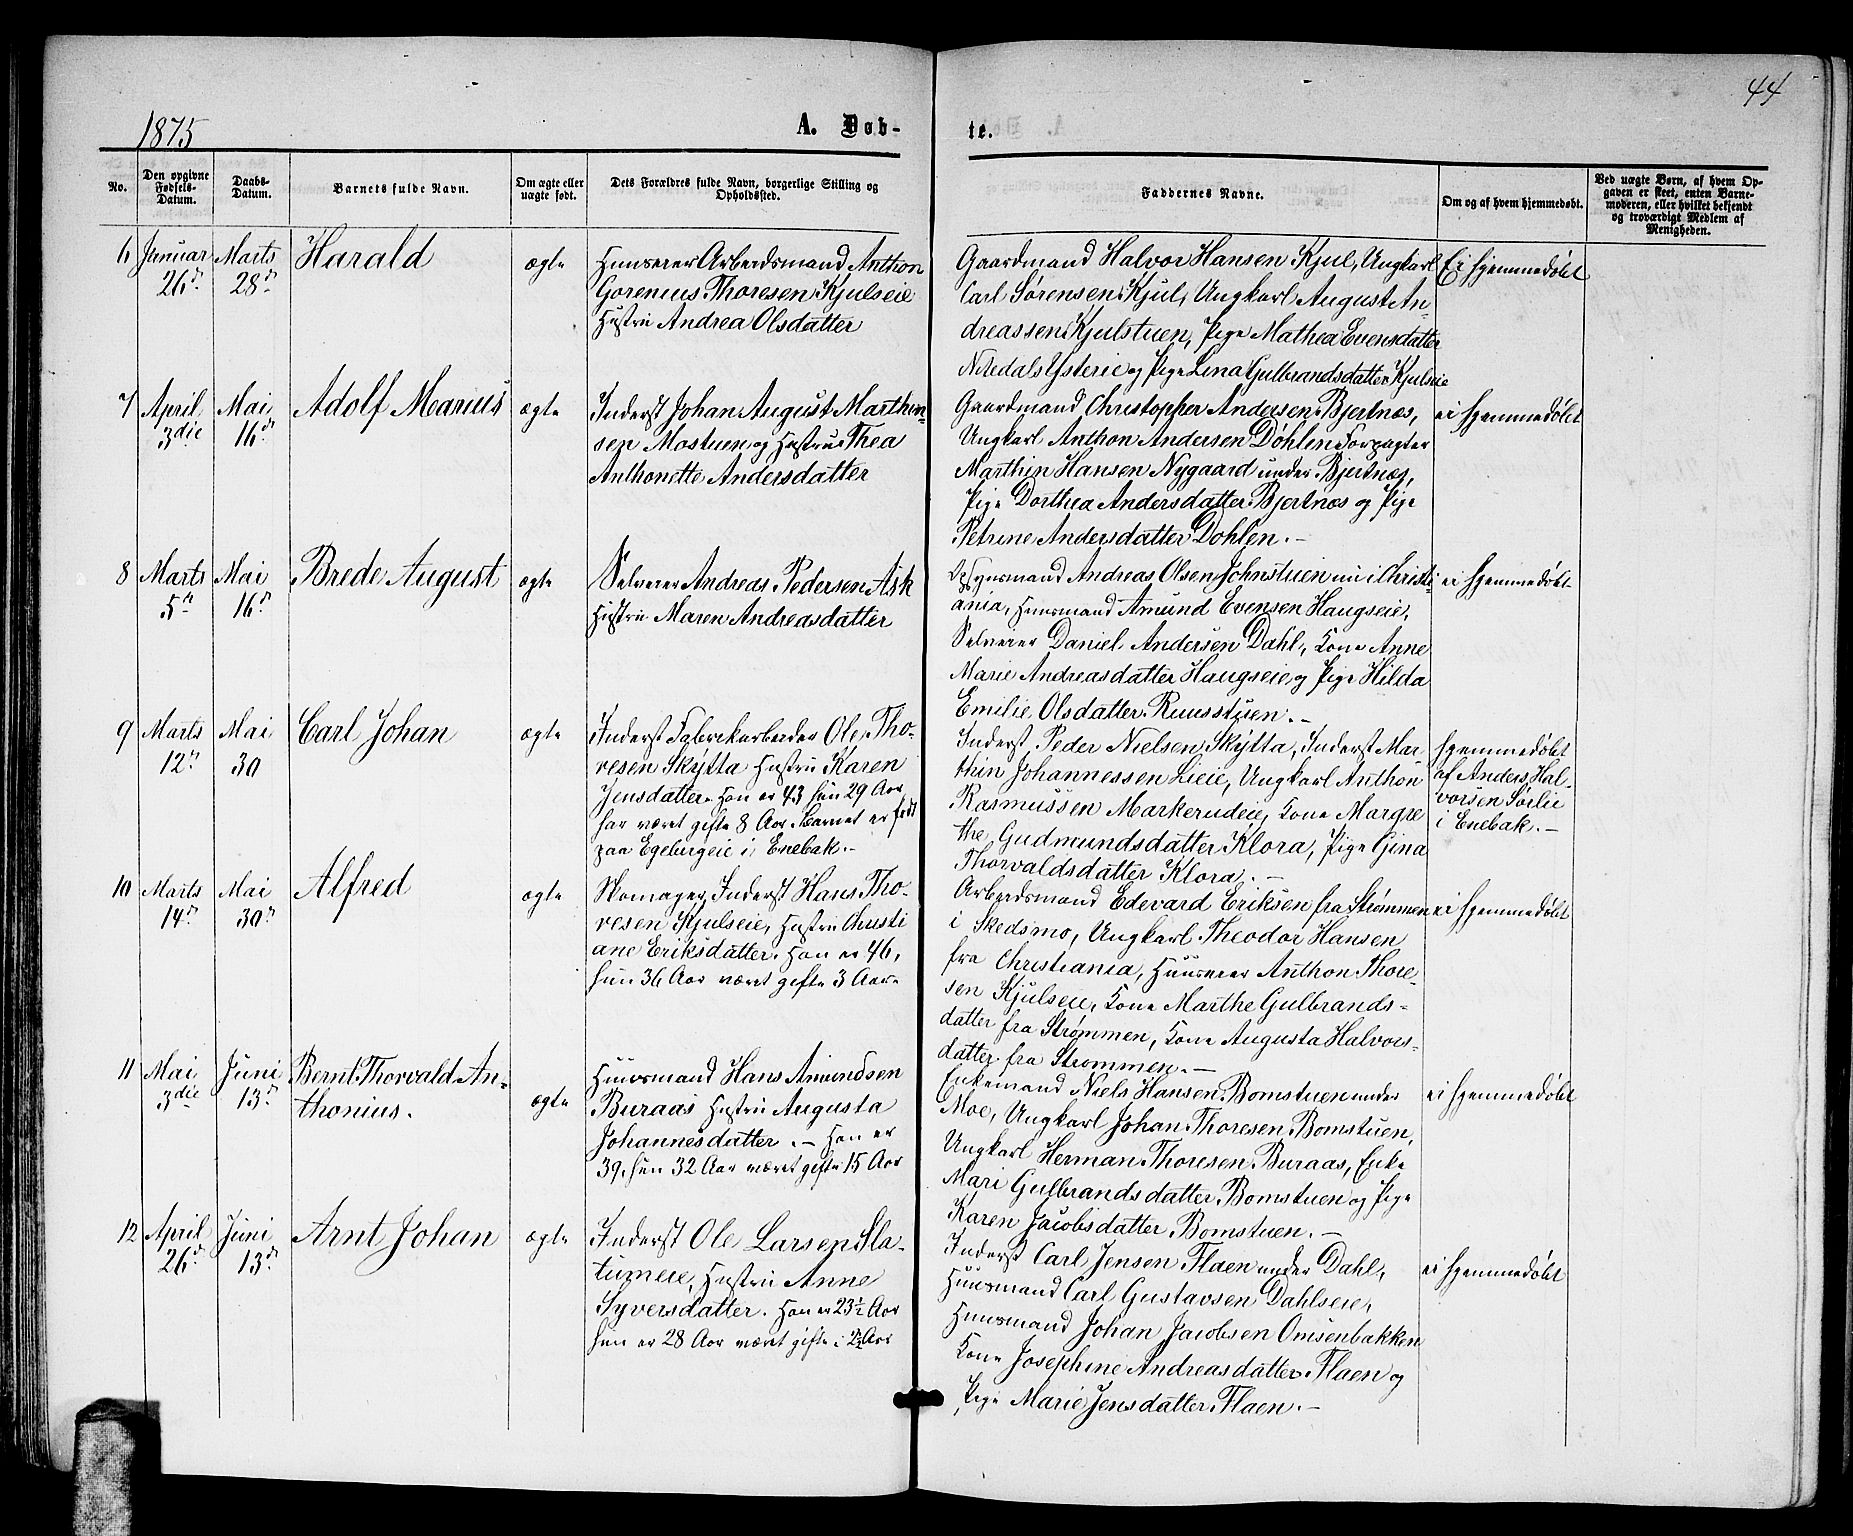 44
1875
A. Døb-
te.
No.
Den opgivne Fødsels-Datum.
Daabs-Datum.
Barnets fulde Navn.
Om ægte eller uægte født.
Dets Forældres fulde Navn, borgerlige Stilling og Opholdssted.
Faddernes Navne.
Om og af hvem hjemmedøbt.
Ved uægte Børn, af hvem Op-
gaven er skeet, enten Barne-
moderen, eller hvilket bekjendt
og troværdigt Medlem af
Menigheden.
6 Januar 26d. Marts 28d. Harald ægte
Huuseier Arbeidsmand Anthon
Gorenius Thoresen Kjulseie
Hustru Andrea Olsdatter
Gaardmand Halvor Hansen Kjul, Ungkarl
Carl Sørensen Kjul, Ungkarl August An-
dreassen Kjulstuen, Pige Mathea Evensdatter
Nitedals Ysterie og Pige Lina Gulbrandsdatter Kjulseie
Ei hjemmedøbt
7 April 3die Mai 16d. Adolf Marius ægte
Inderst Johan August Marthin-
sen Mostuen og Hustrue Thea
Anthonette Andersdatter
Gaardmand Christopher Andersen Bjertnæs,
Ungkarl Anthon Andersen Døhlen Forpagter
Marthin Hansen Nygaard under Bjertnæs,
Pige Dorthea Andersdatter Bjertnæs og Pige
Petrine Andersdatter Dohlen.-
ei hjemmedøbt
8 Marts 5te Mai 16d. Brede August ægte
Selveier Andreas Pedersen Ask
Hustru Maren Andreasdatter
Opsynsmand Andreas Olsen Johnstuen nu i Christi-
ania, Huusmand Amund Evensen Haugseie,
Selveier Daniel Andersen Dahl, Kone Anne
Marie Andreasdatter Haugseie og Pige Hilda
Emilie Olsdatter Ruusstuen.-
ei hjemmedøbt
9 Marts 12te Mai 30 Carl Johan ægte
Inderst Fabrikarbeider Ole Tho-
resen Skytta Hustru Karen
Jensdatter. Han er 43 hun 29 Aar
har været gifte 8 Aar. Barnet er født
paa Egebergeie i Enebak.-
Inderst Peder Nielsen Skytta, Inderst Mar-
thin Johannessen Lieie, Ungkarl Anthon
Rasmussen Markerudeie, Kone Margre
the Gudmundsdatter Klora, Pige Gina
Thorvaldsdatter Klora.-
hjemmedøbt
af Anders Hal-
vorsen Sørlie
i Enebak.-
10 Marts 14d. Mai 30d. Alfred ægte
Skomager, Inderst Hans Tho-
resen Kjulseie, Hustru Christi
ane Eriksdatter. Han er 46,
hun 36 Aar været gifte 3 Aar.
Arbeidsmand Edevard Eriksen fra Strømmen
i Skedsmo, Ungkarl Theodor Hansen
fra Christiania, Huuseier Anthon Thore-
sen Kjulseie, Kone Marthe Gulbrands-
datter fra Strømmen, Kone Augusta Halvors-
datter fra Strømmen.-
ei hjemmedøbt
11 Mai 3die Juni 13d. Bernt Thorvald An-
thonius. ægte
Huusmand Hans Amundsen
Buraas Hustru Augusta
Johannesdatter.- Han er
39, hun 32 Aar været gifte 15 Aar
Enkemand Niels Hansen Bomstuen under
Moe, Ungkarl Johan Thoresen Bomstuen,
Ungkarl Herman Thoresen Buraas, Enke
Mari Gulbrandsdatter Bomstuen og Pige
Karen Jacobsdatter Bomstuen.-
ei hjemmedøbt
12 April 26d. Juni 13d. Arnt Johan ægte
Inderst Ole Larsen Sla-
tumeie, Hustru Anne
Syversdatter. Han er 23½ Aar
hun er 28 Aar været gifte i 2½ Aar
Inderst Carl Jensen Flaen under Dahl,
Huusmand Carl Gustavsen Dahlseie,
Huusmand Johan Jacobsen Omsenbakken
Kone Josephine Andreasdatter Flaen og
Pige Marie Jensdatter Flaen.-
ei hjemmedøbt